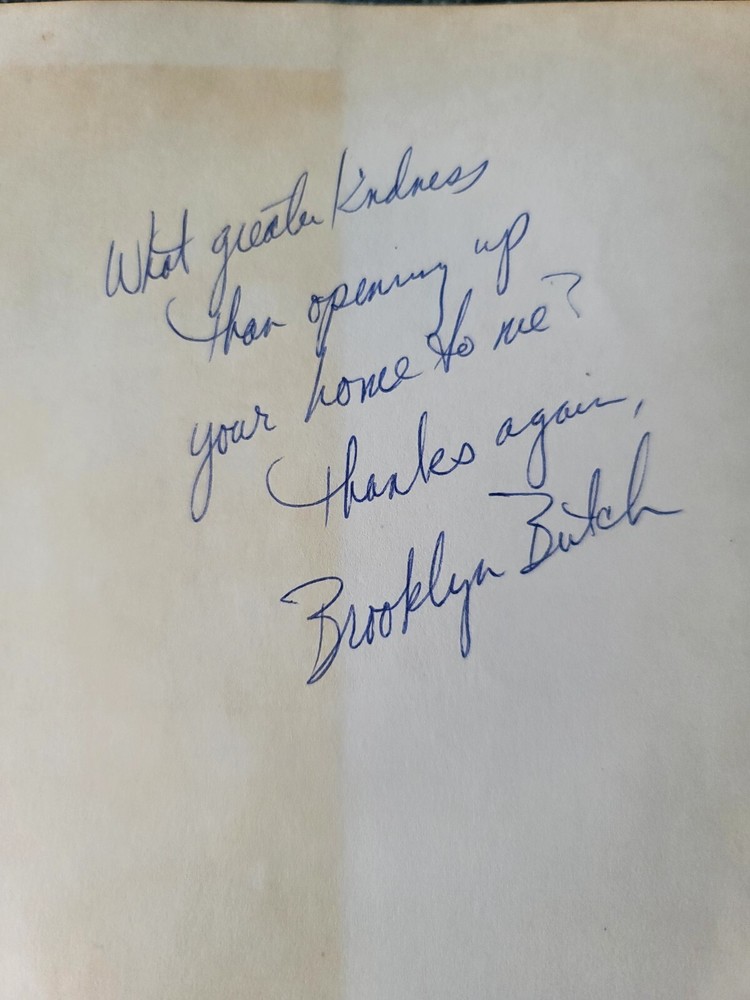 What greater Kindness
than opening up
your home to me?
Thanks again,
Brooklyn Butch